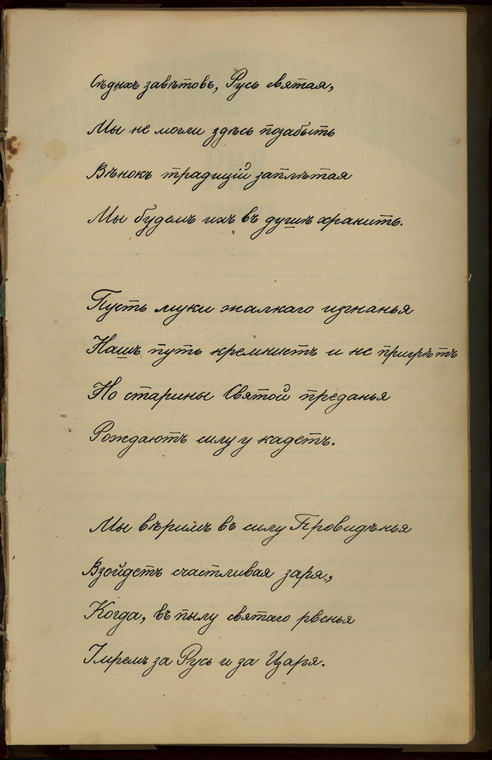 Сѣдыхъ завѣтовъ, Русь святая,
Мы не могли здѣсь позабыть
Вѣнокъ традицій заплѣтая
Мы будемъ ихъ въ душѣ хранить.
Пусть муки жалкаго изгнанья
Нашъ путь кремнистъ и не пригрѣтъ
Но старины Святой преданья
Рождаютъ силу у кадетъ.
Мы вѣримъ въ силу Провидѣнья
Взойдетъ счастливая заря,
Когда, въ пылу святаго рвенья
Умремъ за Русь и за Царя.